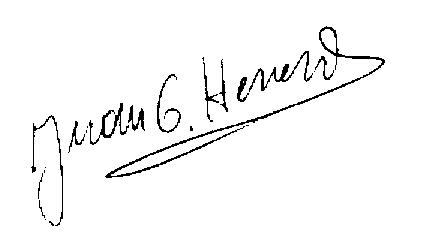 Juan G. Herrera